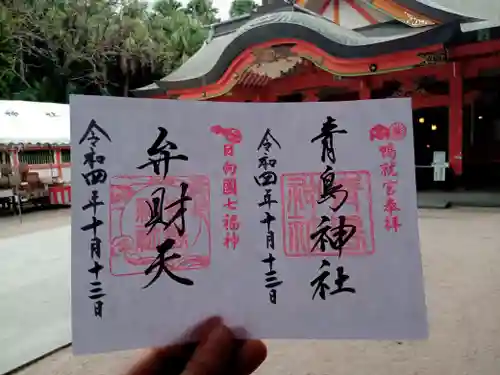 鴨就宮奉拝
青島神社
令和四年十月十三日
日向国七福神
弁財天
令和四年十月十三日